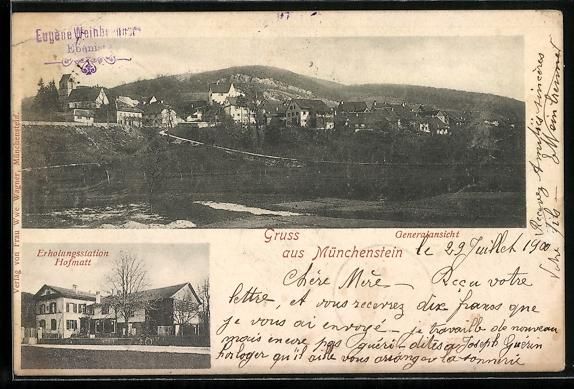 Eugène Weinbrenner
Ebénist
Verlag von Frau Wwe Wagner, Münchenstein.
Generalansicht
Gruss
aus Münchenstein
Erholungsstation
Hofmatt
le 29 Juillet 1900
Chère Mère — Reçu votre
lettre, et vous recevrez dix francs que
je vous ai envoyé — je travaille de nouveau
mais encore pas guéri — dites à Joseph Guerin
horloger qu'il aille vous arranger la sonnerie
Recevez amitiés sincères
Votre fils — E Weinbrenner